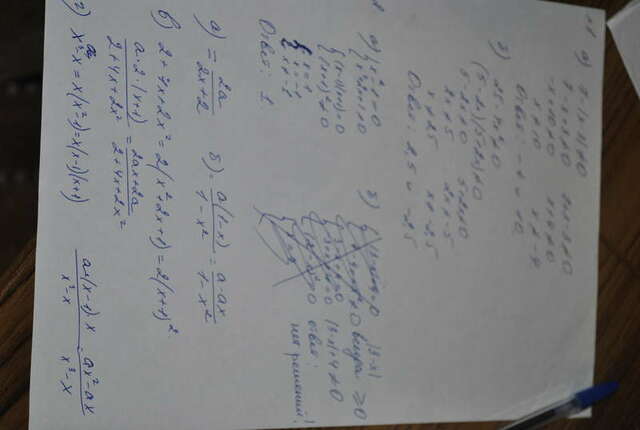 а) 7-|x-3|≠0
7-x+3≠0 7+x-3≠0
-x+10≠0 x+4≠0
x≠10 x≠-4
Ответ: -4 и 10.
б) 25-4x²≠0
(5-2x)(5+2x)≠0
5-2x≠0 5+2x≠0
2x≠5 2x≠-5
x≠2,5 x≠-2,5
Ответ: 2,5 и -2,5
2 а) {x²-1=0 б) |3-x|
{x²+2x+1≠0 всегда ≥0
{(x-1)(x+1)=0 |3-x|+4≠0
{(x+1)²≠0 ответ:
{x=1 нет решений!
x=-1
x≠-1
Ответ: 1.
а) = 2a/2x+2 б) = a(1-x)/1-x² = a-ax/1-x²
в) 2+4x+2x²=2(x²+2x+1)=2(x+1)²
a·2·(x+1)/2+4x+2x² = 2ax+2a/2+4x+2x²
г) x³-x=x(x²-1)=x(x-1)(x+1) a·(x-1)·x/x³-x = ax²-ax/x³-x